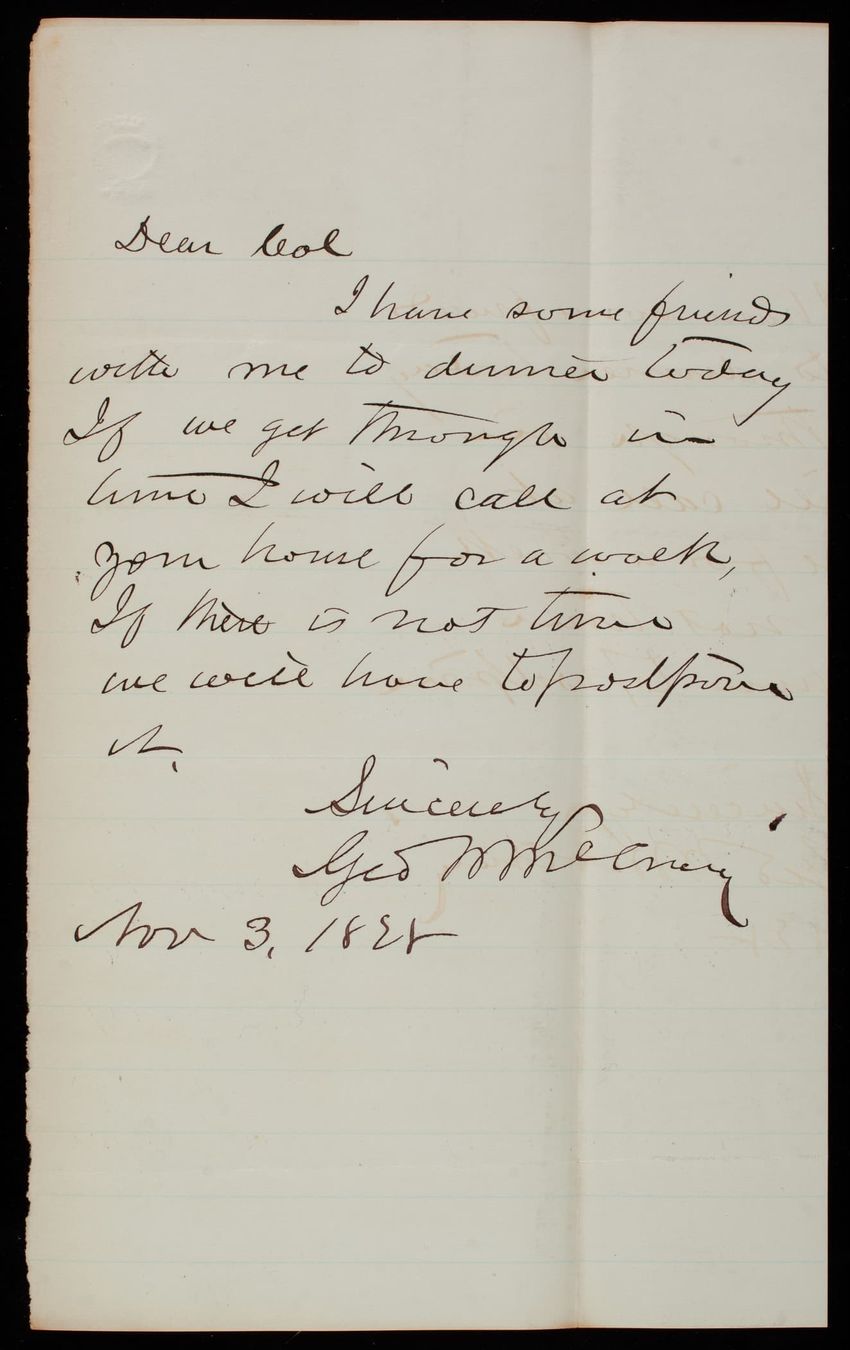 Dear Col
I have some friends
with me to dinner today
If we get through in
time I will call at
your house for a walk,
If there is not time
we will have to postpone
it.
Sincerely
Geo W McCrary
Nov 3, 18